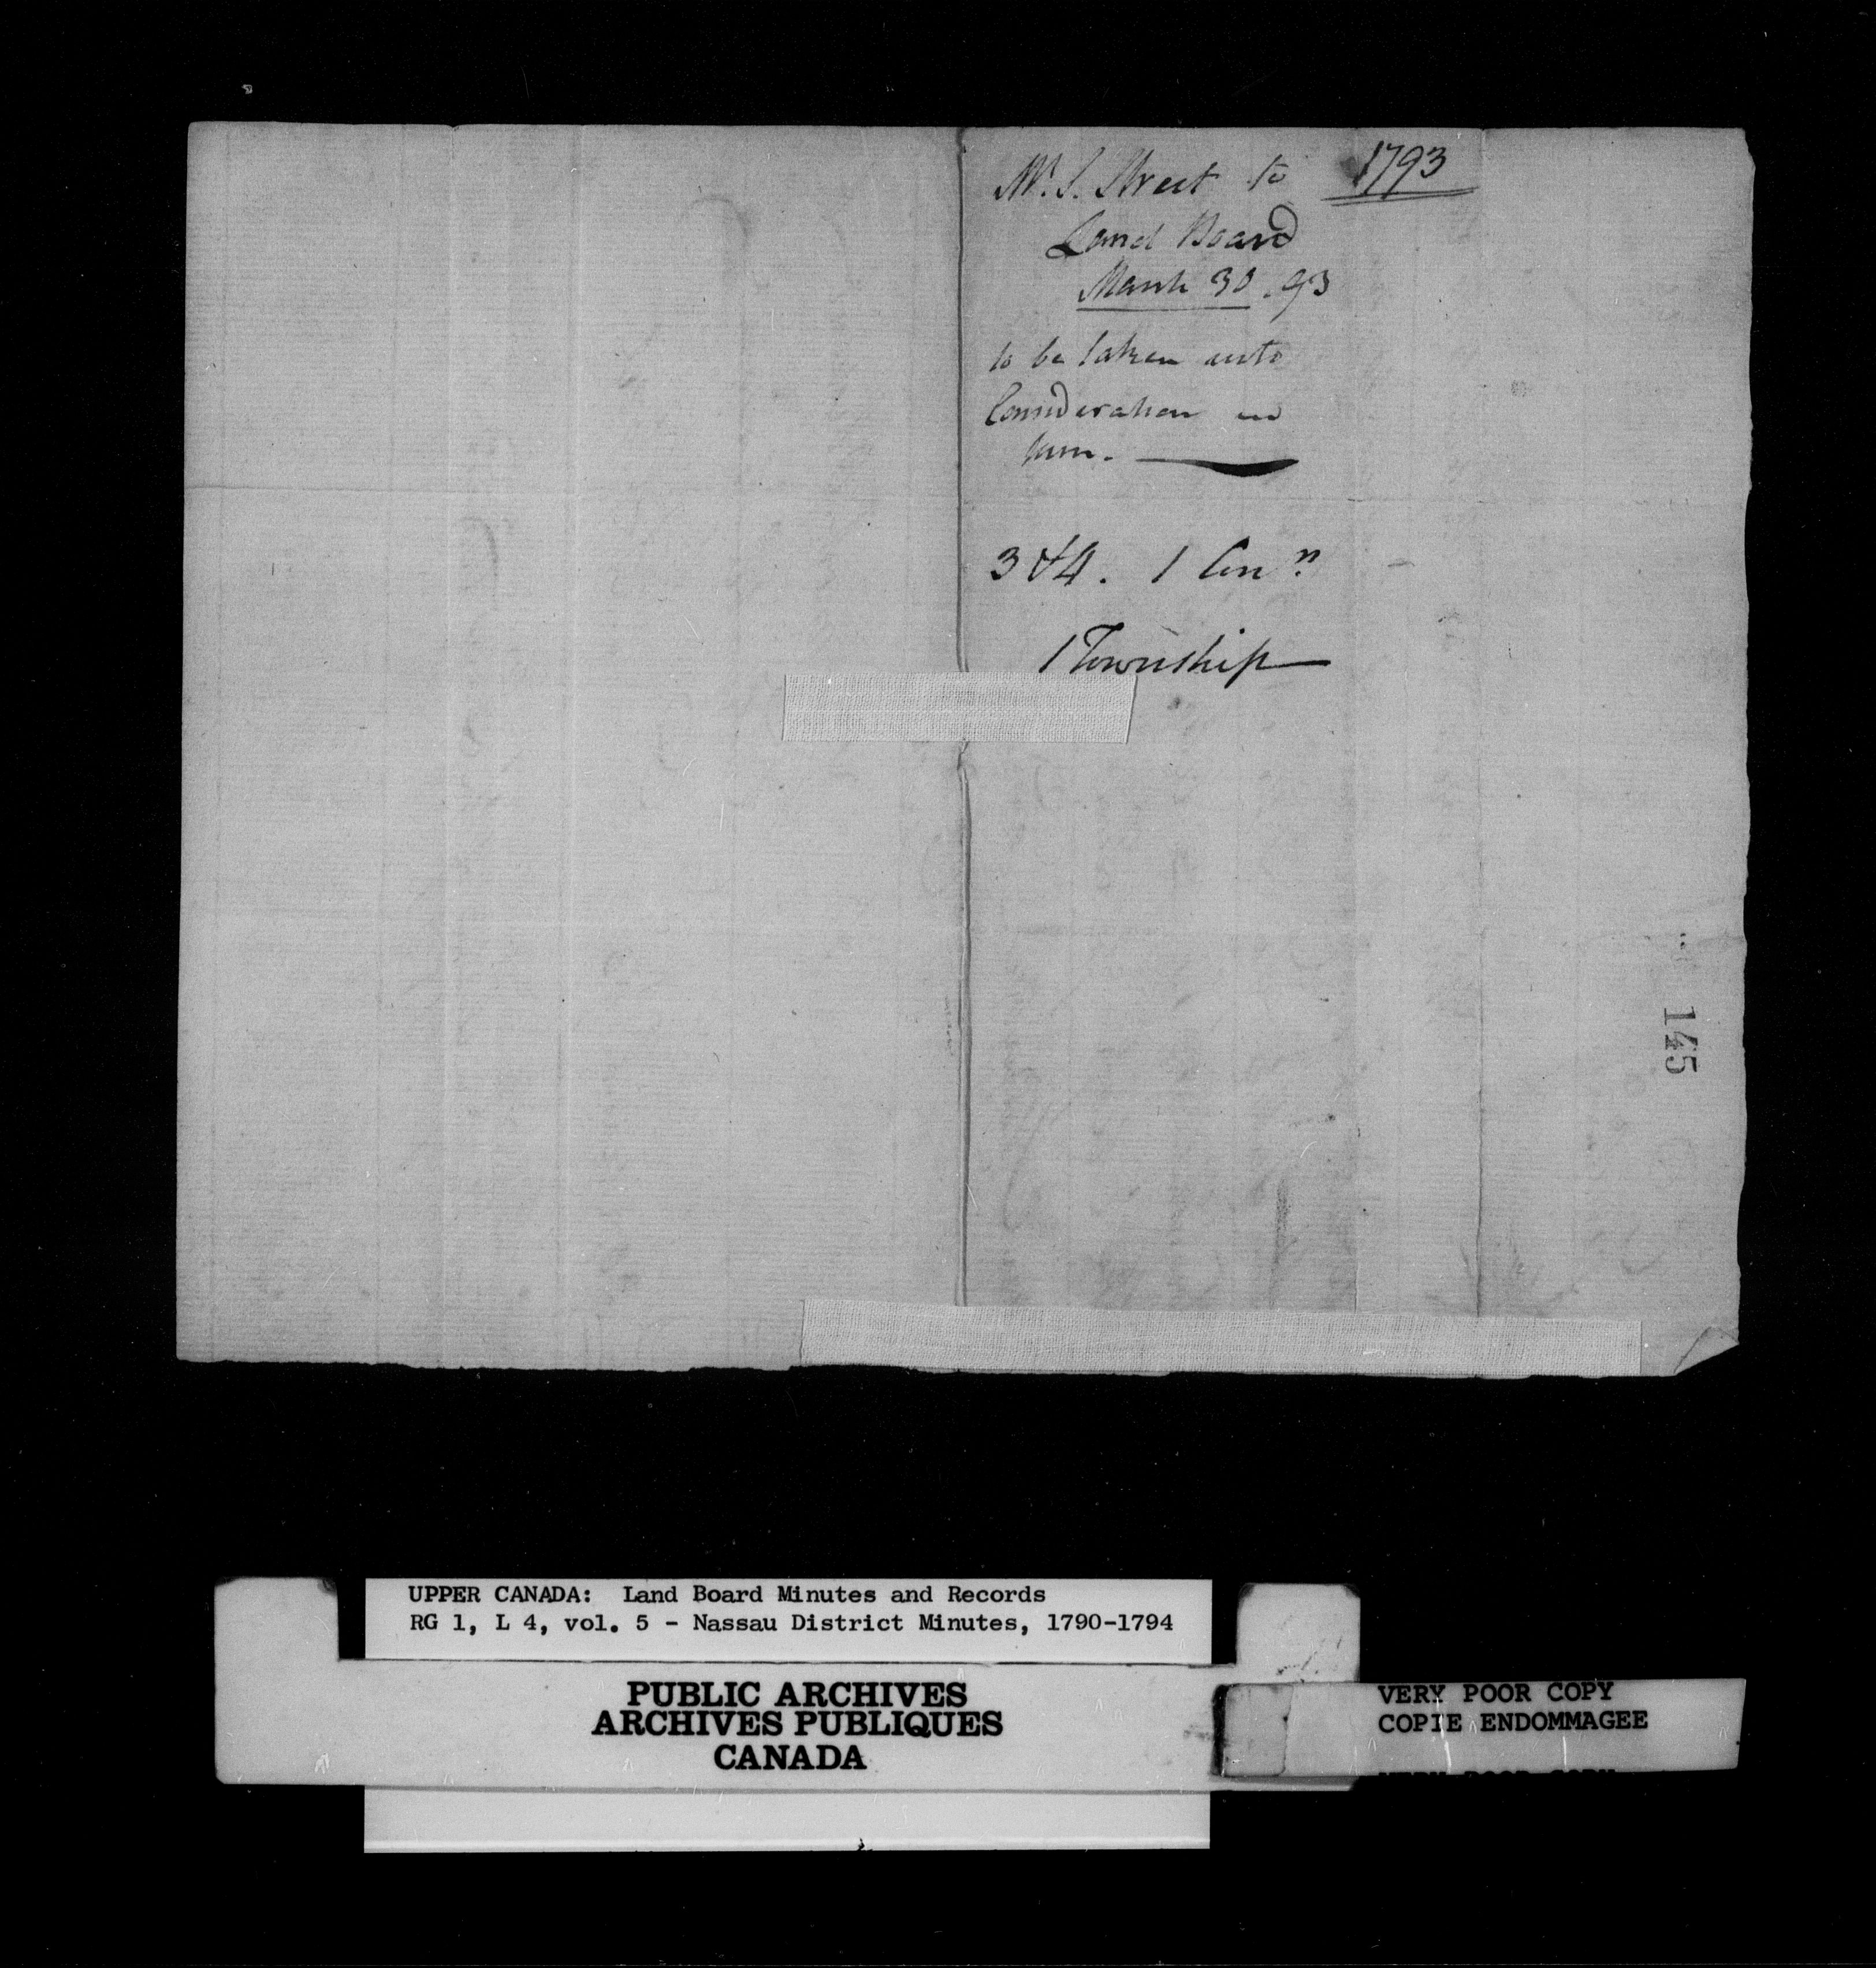 1793
Mr. S. Street to
Land Board
March 30. 93
to be taken into
Consideration in
turn.
3 & 4. 1 Conn
1 Township
145
UPPER CANADA: Land Board Minutes and Records
RG 1, L 4, vol. 5 - Nassau District Minutes, 1790-1794
PUBLIC ARCHIVES
ARCHIVES PUBLIQUES
CANADA
VERY POOR COPY
COPIE ENDOMMAGEE
VERY POOR COPY